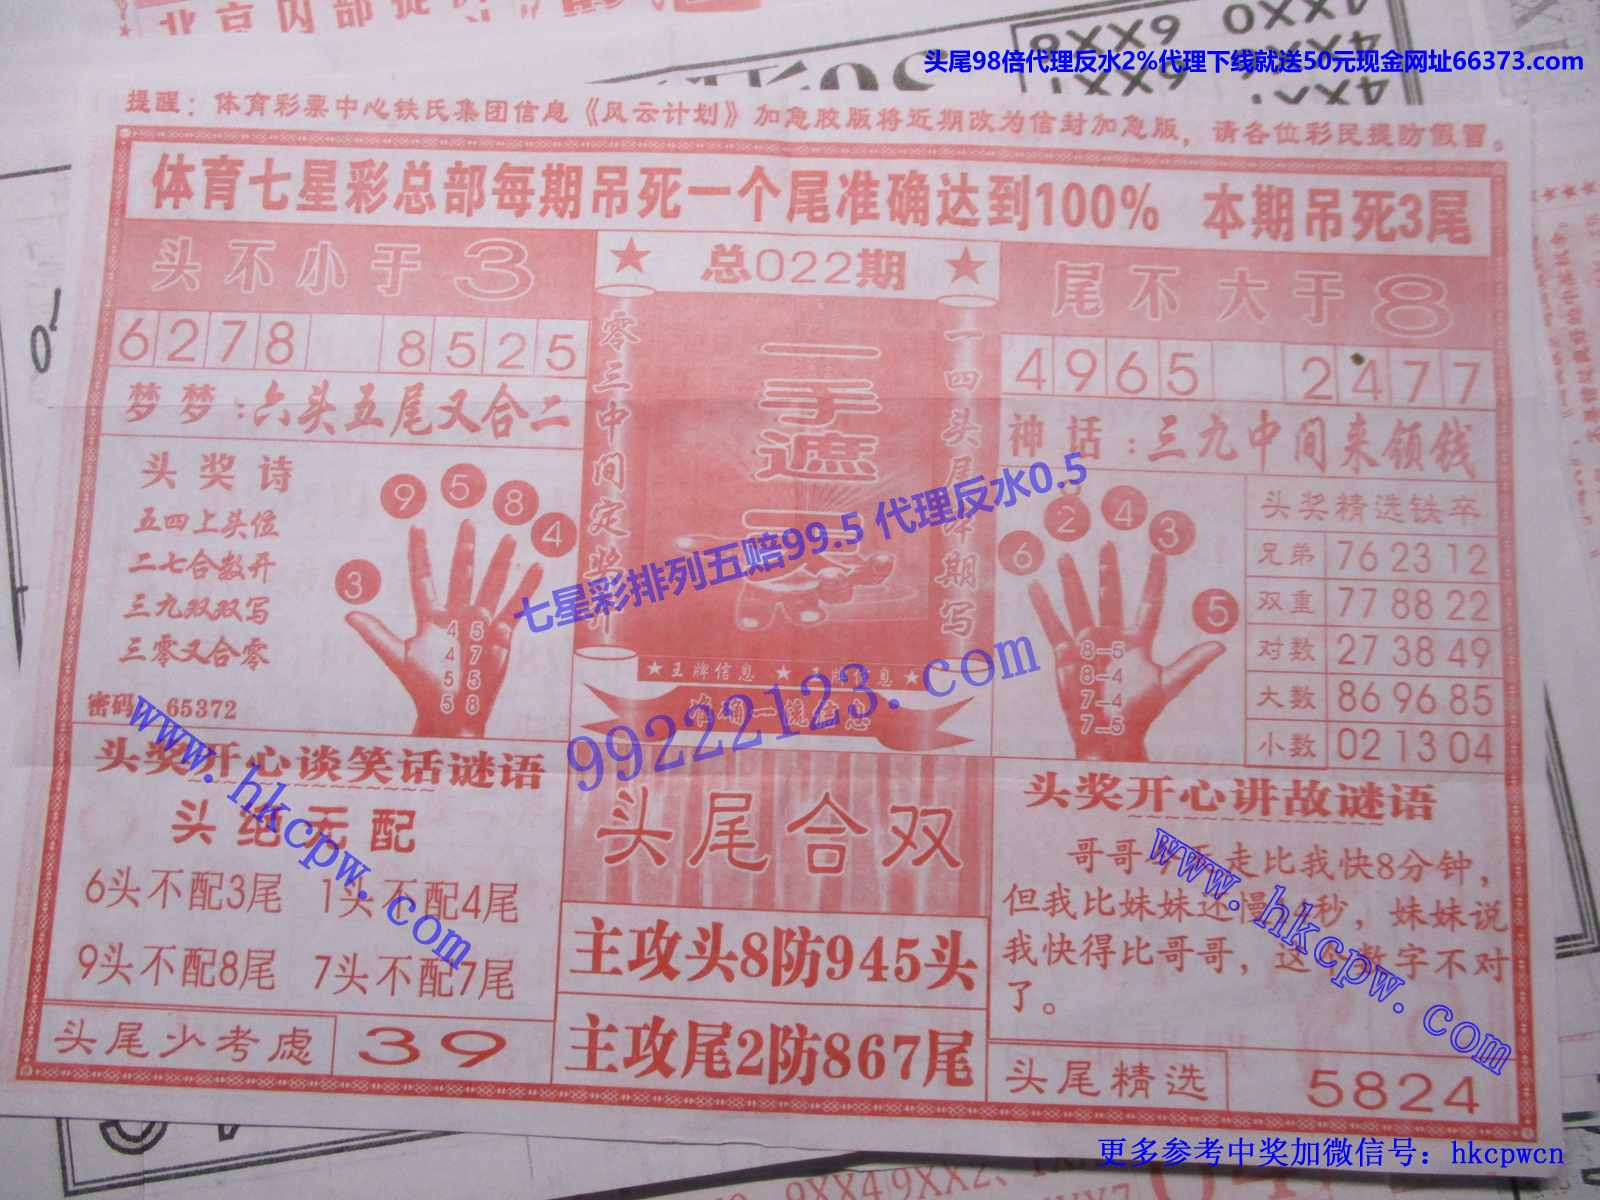 北京内部提
4XX0 6XX8
头尾98倍代理反水2%代理下线就送50元现金网址66373.com
提醒：体育彩票中心铁氏集团信息《风云计划》加急胶版将近期改为信封加急版，请各位彩民提防假冒。
体育七星彩总部每期吊死一个尾准确达到100% 本期吊死3尾
头不小于3
6278 8525
梦梦：六头五尾又合二
头奖诗
五四上头位
二七合数开
三九双双写
三零又合零
密码 65372
3 9 5 8 4
4 5
4 7
5 5
5 8
★ 总022期 ★
零三中间定奖
一手遮
一四头尾 期写
★王牌信息 ★ 牌信息★
准确一流信息
尾不大于8
4965 2477
神话：三九中间来领钱
6 2 4 3 5
8-5
8-4
7-4
7-5
头奖精选铁卒
兄弟 76 23 12
双重 77 88 22
对数 27 38 49
大数 86 96 85
小数 02 13 04
七星彩排列五赔99.5 代理反水0.5
99222123.com
www.hkcpw.com
www.hkcpw.com
头奖开心谈笑话谜语
头绝无配
6头不配3尾 1头不配4尾
9头不配8尾 7头不配7尾
头尾少考虑 39
头尾合双
主攻头8防945头
主攻尾2防867尾
头奖开心讲故谜语
哥哥 走比我快8分钟，
但我比妹妹还慢 秒，妹妹说
我快得比哥哥，这 数字不对
了。
头尾精选 5824
更多参考中奖加微信号：hkcpwcn
9XX4 9XX2、